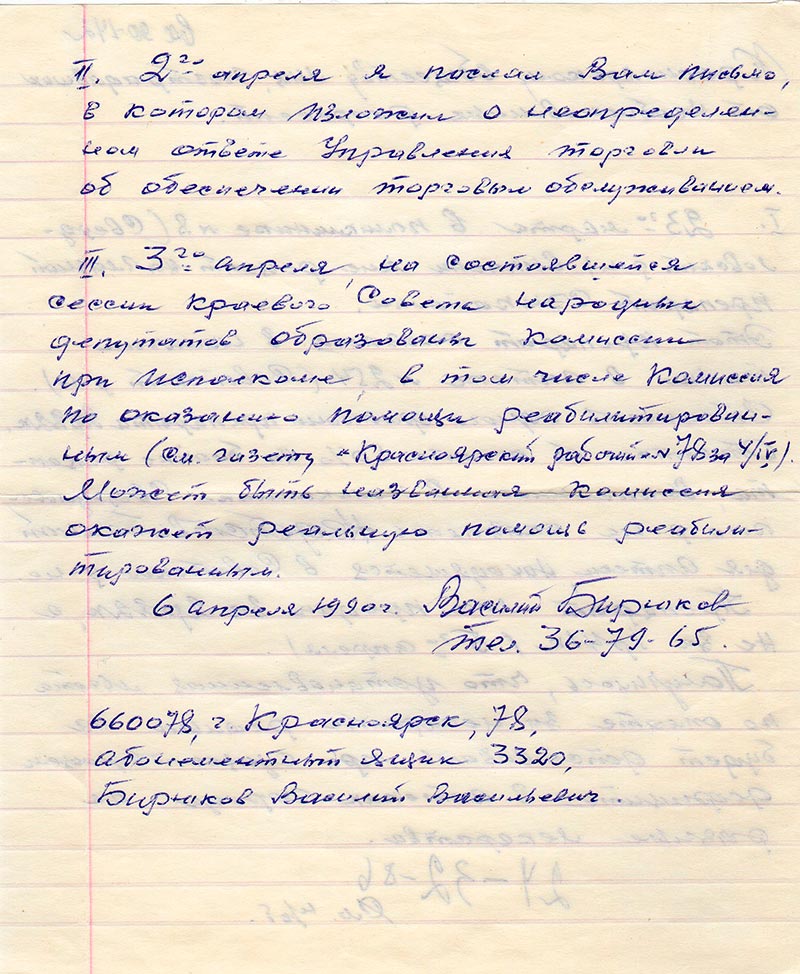 II. 2го апреля я послал Вам письмо,
в котором изложил о неопределен-
ном ответе Управления торговли
об обеспечении торговым обслуживанием.
III. 3го апреля, на состоявшейся
сессии краевого Совета народных
депутатов образованы комиссии
при исполкоме, в том числе комиссия
по оказанию помощи реабилитирован-
ным (см. газету "Красноярский рабочий" N 78 за 4/IV).
Может быть названная комиссия
окажет реальную помощь реабили-
тированным.
6 апреля 1990г. Василий Бирюков
тел. 36-79-65.
660078, г. Красноярск, 78,
абонементный ящик 3320,
Бирюков Василий Васильевич.